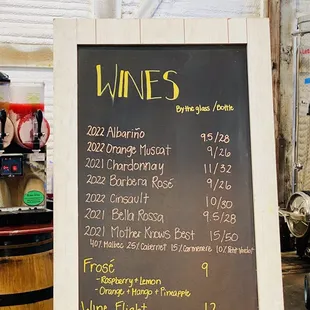 WINES
By the glass / Bottle
2022 Albariño 9.5/28
2022 Orange Muscat 9/26
2021 Chardonnay 11/32
2022 Barbera Rosé 9/26
2022 Cinsault 10/30
2021 Bella Rossa 9.5/28
2021 Mother Knows Best 15/50
40% Malbec 25% Cabernet 15% Carmenere 10% Petit Verdot
Frosé 9
- Raspberry + Lemon
- Orange + Mango + Pineapple
Wine Flight 12